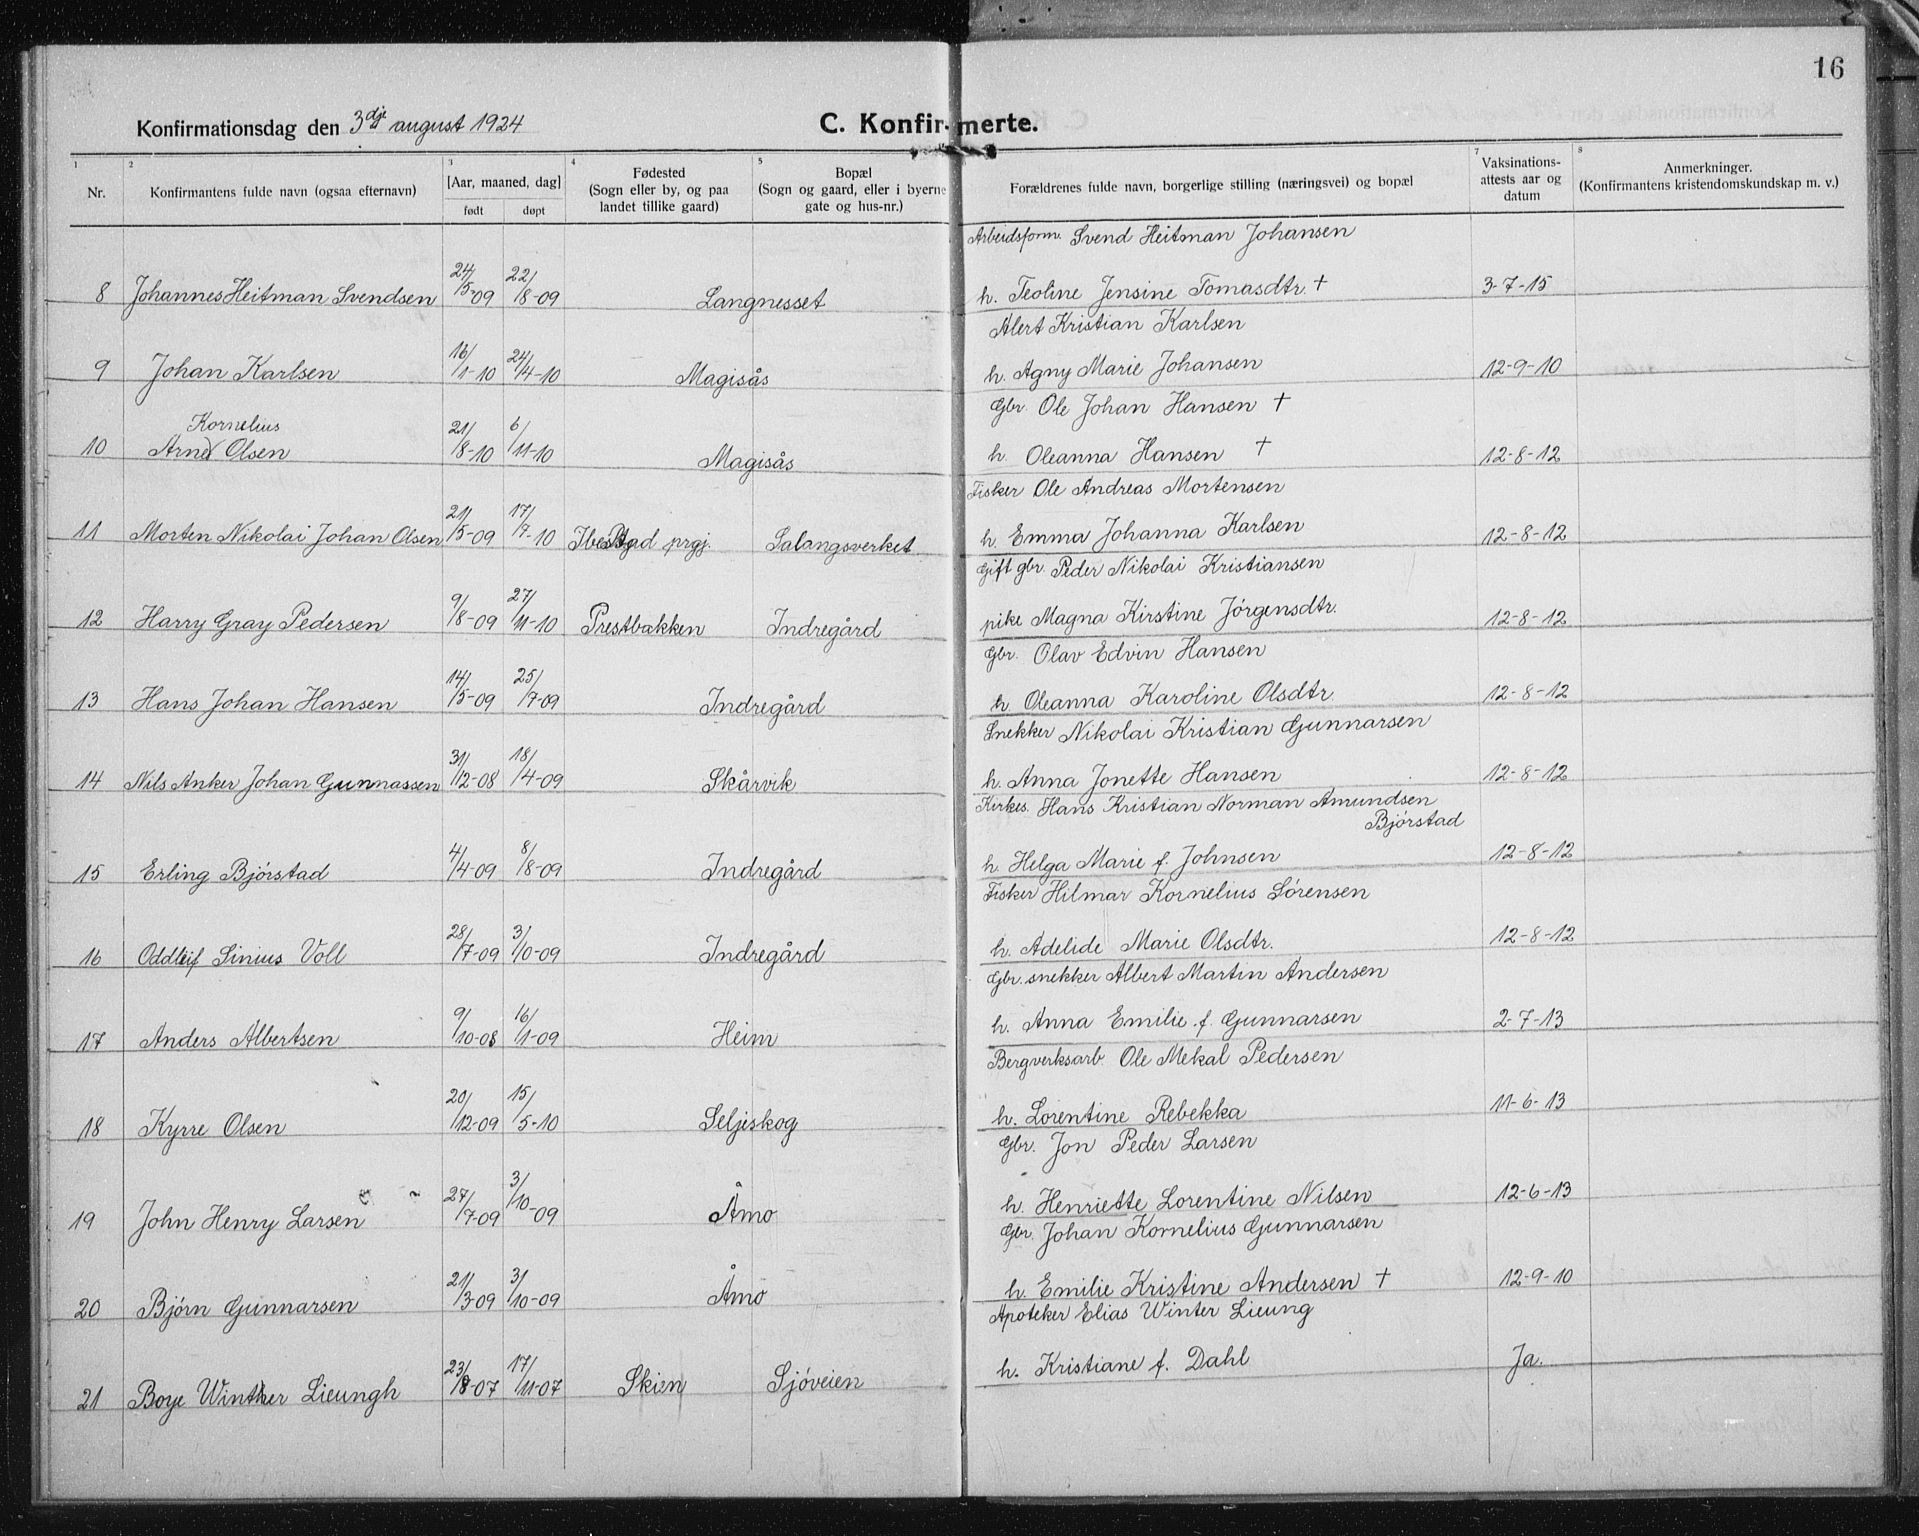 16
Konfirmationsdag den 3dje august 1924 C. Konfirmerte.
1 2 3 4 5 7 8
Nr. Konfirmantens fulde navn (ogsaa efternavn) [Aar, maaned, dag] født døpt Fødested (Sogn eller by, og paa landet tillike gaard) Bopæl (Sogn og gaard, eller i byerne gate og hus-nr.) Forældrenes fulde navn, borgerlige stilling (næringsvei) og bopæl Vaksinations-attests aar og datum Anmerkninger. (Konfirmantens kristendomskundskap m. v.)
Arbeidsform. Svend Heitman Johansen
8 Johannes Heitman Svendsen 24/5-09 22/8-09 Langnesset h. Teoline Jensine Tomasdtr. † 3-7-15
Alert Kristian Karlsen
9 Johan Karlsen 16/1-10 24/4-10 Magisås h. Agny Marie Johansen 12-9-10
Gbr. Ole Johan Hansen †
Kornelius
10 Arne Olsen 21/8-10 6/11-10 Magisås h. Oleanna Hansen † 12-8-12
Fisker Ole Andreas Mortensen
11 Morten Nikolai Johan Olsen 21/5-09 17/7-10 Ibestad prgj. Salangsverket h. Emma Johanna Karlsen 12-8-12
Gift gbr. Peder Nikolai Kristiansen
12 Harry Gray Pedersen 9/8-09 27/11-10 Prestbakken Indregård pike Magna Kirstine Jörgensdtr. 12-8-12
Gbr. Olav Edvin Hansen
13 Hans Johan Hansen 14/5-09 25/7-09 Indregård h. Oleanna Karoline Olsdtr. 12-8-12
Snekker Nikolai Kristian Gunnarsen
14 Nils Anker Johan Gunnassen 31/12-08 18/4-09 Skårvik h. Anna Jonette Hansen 12-8-12
Kirkes. Hans Kristian Norman Amundsen
Bjórstad
15 Erling Bjórstad 4/4-09 8/8-09 Indregård h. Helga Marie f. Johnsen 12-8-12
Fisker Hilmar Kornelius Sórensen
16 Oddleif Sinius Voll 28/7-09 3/10-09 Indregård h. Adelide Marie Olsdtr. 12-8-12
Gbr. snekker Albert Martin Andersen
17 Anders Albertsen 9/10-08 16/1-09 Heim h. Anna Emilie f. Gunnarsen 2-7-13
Bergverksarb. Ole Mekal Pedersen
18 Kyrre Olsen 20/12-09 15/5-10 Seljeskog h. Lorentine Rebekka 11-6-13
Gbr. Jon Peder Larsen
19 John Henry Larsen 27/7-09 3/10-09 Åmo h. Henriette Lorentine Nilsen 12-6-13
Gbr. Johan Kornelius Gunnarsen
20 Bjórn Gunnarsen 21/3-09 3/10-09 Åmo h. Emilie Kristine Andersen † 12-9-10
Apoteker Elias Winter Lieung
21 Boye Winther Lieungh 23/8-07 17/11-07 Skien Sjóveien h. Kristiane f. Dahl Ja.